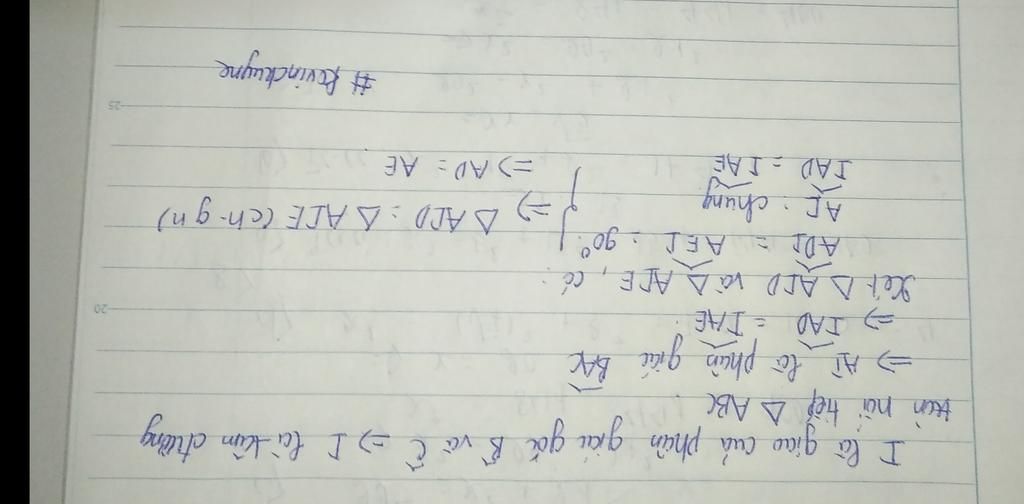 I là giao của phân giác góc B̂ và Ĉ => I là tâm đường
tròn nội tiếp △ ABC.
=> AI là phân giác B͡AC
=> I͡AD = I͡AE.
Xét △ AID và △ AIE, có:
A͡DI = A͡EI = 90°
AI: chung
I͡AD = I͡AE
} => △ AID = △ AIE (ch-gn)
=> AD = AE.
# Kevinchuyne
20
25